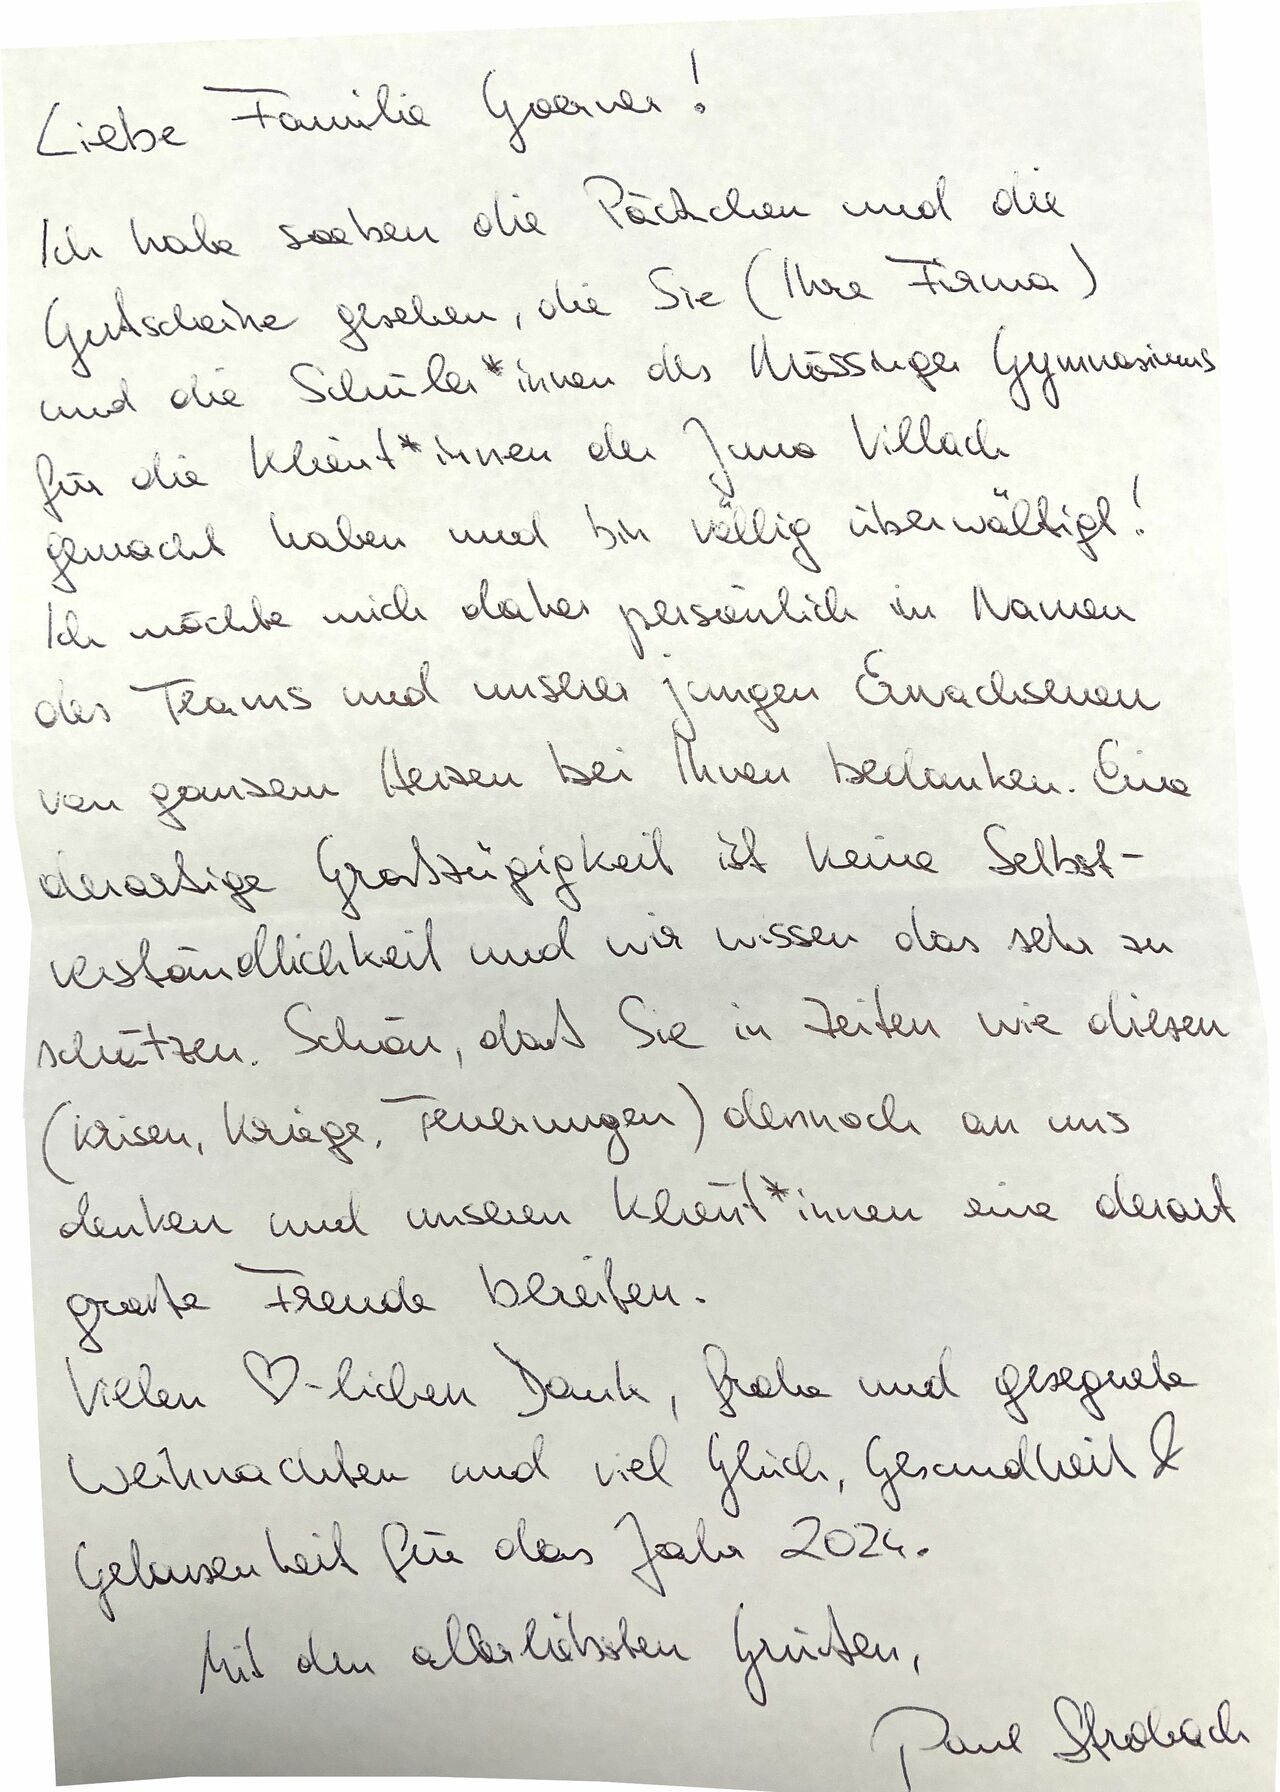 Liebe Familie Goerner!
Ich habe soeben die Päckchen und die
Gutscheine gesehen, die Sie (Ihre Firma)
und die Schüler*innen des Mössinger Gymnasiums
für die Klient*innen der Juno Villach
gemacht haben und bin völlig überwältigt!
Ich möchte mich daher persönlich im Namen
des Teams und unserer jungen Erwachsenen
von ganzem Herzen bei Ihnen bedanken. Eine
derartige Großzügigkeit ist keine Selbst-
verständlichkeit und wir wissen das sehr zu
schätzen. Schön, daß Sie in Zeiten wie diesen
(Krisen, Kriege, Teuerungen) dennoch an uns
denken und unseren Klient*innen eine derart
große Freude bereiten.
Vielen ♡-lichen Dank, frohe und gesegnete
Weihnachten und viel Glück, Gesundheit &
Gelassenheit für das Jahr 2024.
Mit den allerliebsten Grüßen,
Paul Strobach